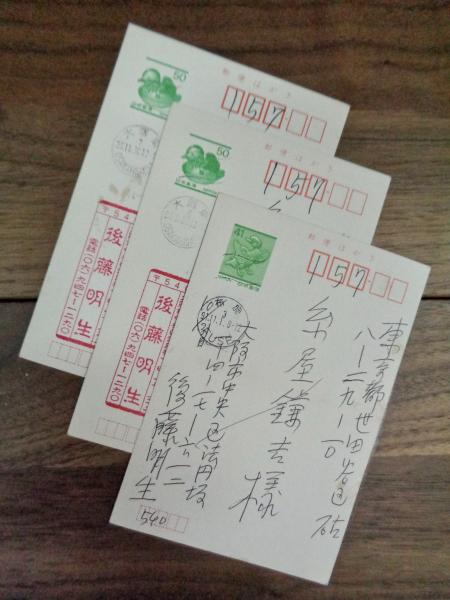 50
郵便はがき
157
〒54
後藤明生
電話〇六-九四七-一二九〇
50
郵便はがき
157
〒54
後藤明生
電話〇六-九四七-一二九〇
41
郵便はがき
157
東京都世田谷区砧
八-二九-一〇
糸屋鎌吉様
大阪市中央区法円坂
後藤明生
540